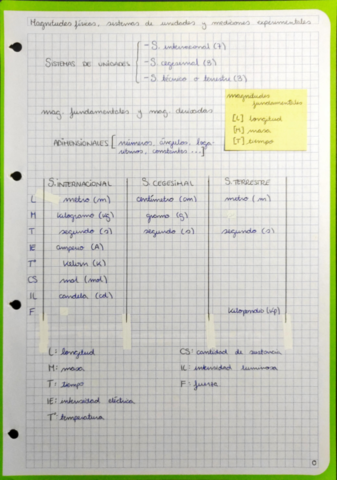 Magnitudes físicas, sistemas de unidades y mediciones experimentales
- S. internacional (7)
SISTEMAS DE UNIDADES - S. cegesimal (3)
- S. técnico o terrestre (3)
mag. fundamentales y mag. derivadas
magnitudes
fundamentales
[L] longitud
[M] masa
[T] tiempo
ADIMENSIONALES [números, ángulos, loga-
ritmos, constantes ...]
S. INTERNACIONAL S. CEGESIMAL S. TERRESTRE
L metro (m) centímetro (cm) metro (m)
M kilogramo (kg) gramo (g)
T segundo (s) segundo (s) segundo (s)
IE amperio (A)
Tª kelvin (K)
CS mol (mol)
IL candela (cd)
F kilopondio (kp)
L: longitud CS: cantidad de sustancia
M: masa IL: intensidad luminosa
T: tiempo F: fuerza
IE: intensidad eléctrica
Tª: temperatura